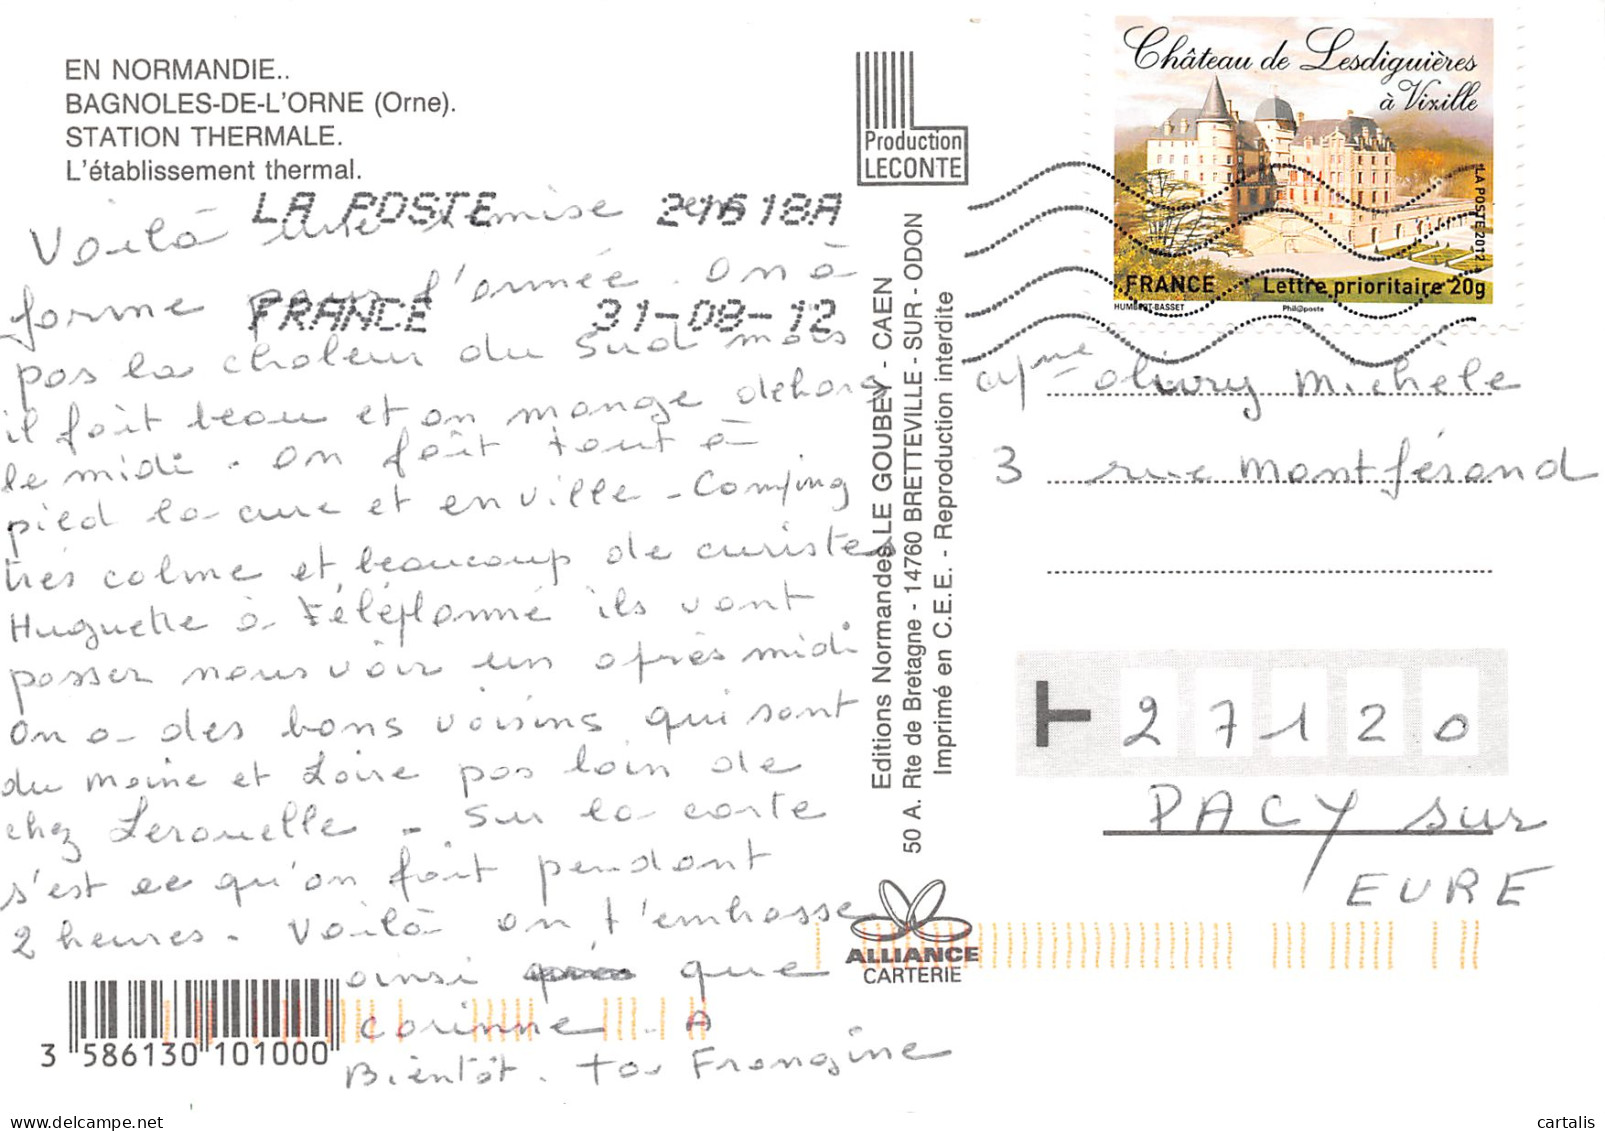 EN NORMANDIE..
BAGNOLES-DE-L'ORNE (Orne).
STATION THERMALE.
L'établissement thermal.
LA POSTE 24618A
FRANCE 31-08-12
Voilà une remise en
forme pour l'année. On à
pas la chaleur du Sud mais
il fait beau et on mange dehors
le midi. On fait tout à
pied la cure et en ville - Camping
très calme et beaucoup de curistes
Huguette à Téléphonné ils vont
passer nous voir un après midi
on a des bons voisins qui sont
du maine et Loire pas loin de
chez Lerouelle - Sur la carte
s'est ce qu'on fait pendant
2 heures. Voilà on t'embrasse
ainsi que
Corinne. A
Bientôt. Ta Frangine
3 586130 101000
Production
LECONTE
Editions Normandes LE GOUBEY - CAEN
50 A. Rte de Bretagne - 14760 BRETTEVILLE - SUR - ODON
Imprimé en C.E.E. - Reproduction interdite
ALLIANCE
CARTERIE
Château de Lesdiguières
à Vizille
LA POSTE 2012
FRANCE Lettre prioritaire 20g
HUMBERT-BASSET Phil@poste
Mme olivry Michèle
3 rue Montférand
27120
PACY sur
EURE
cartalis